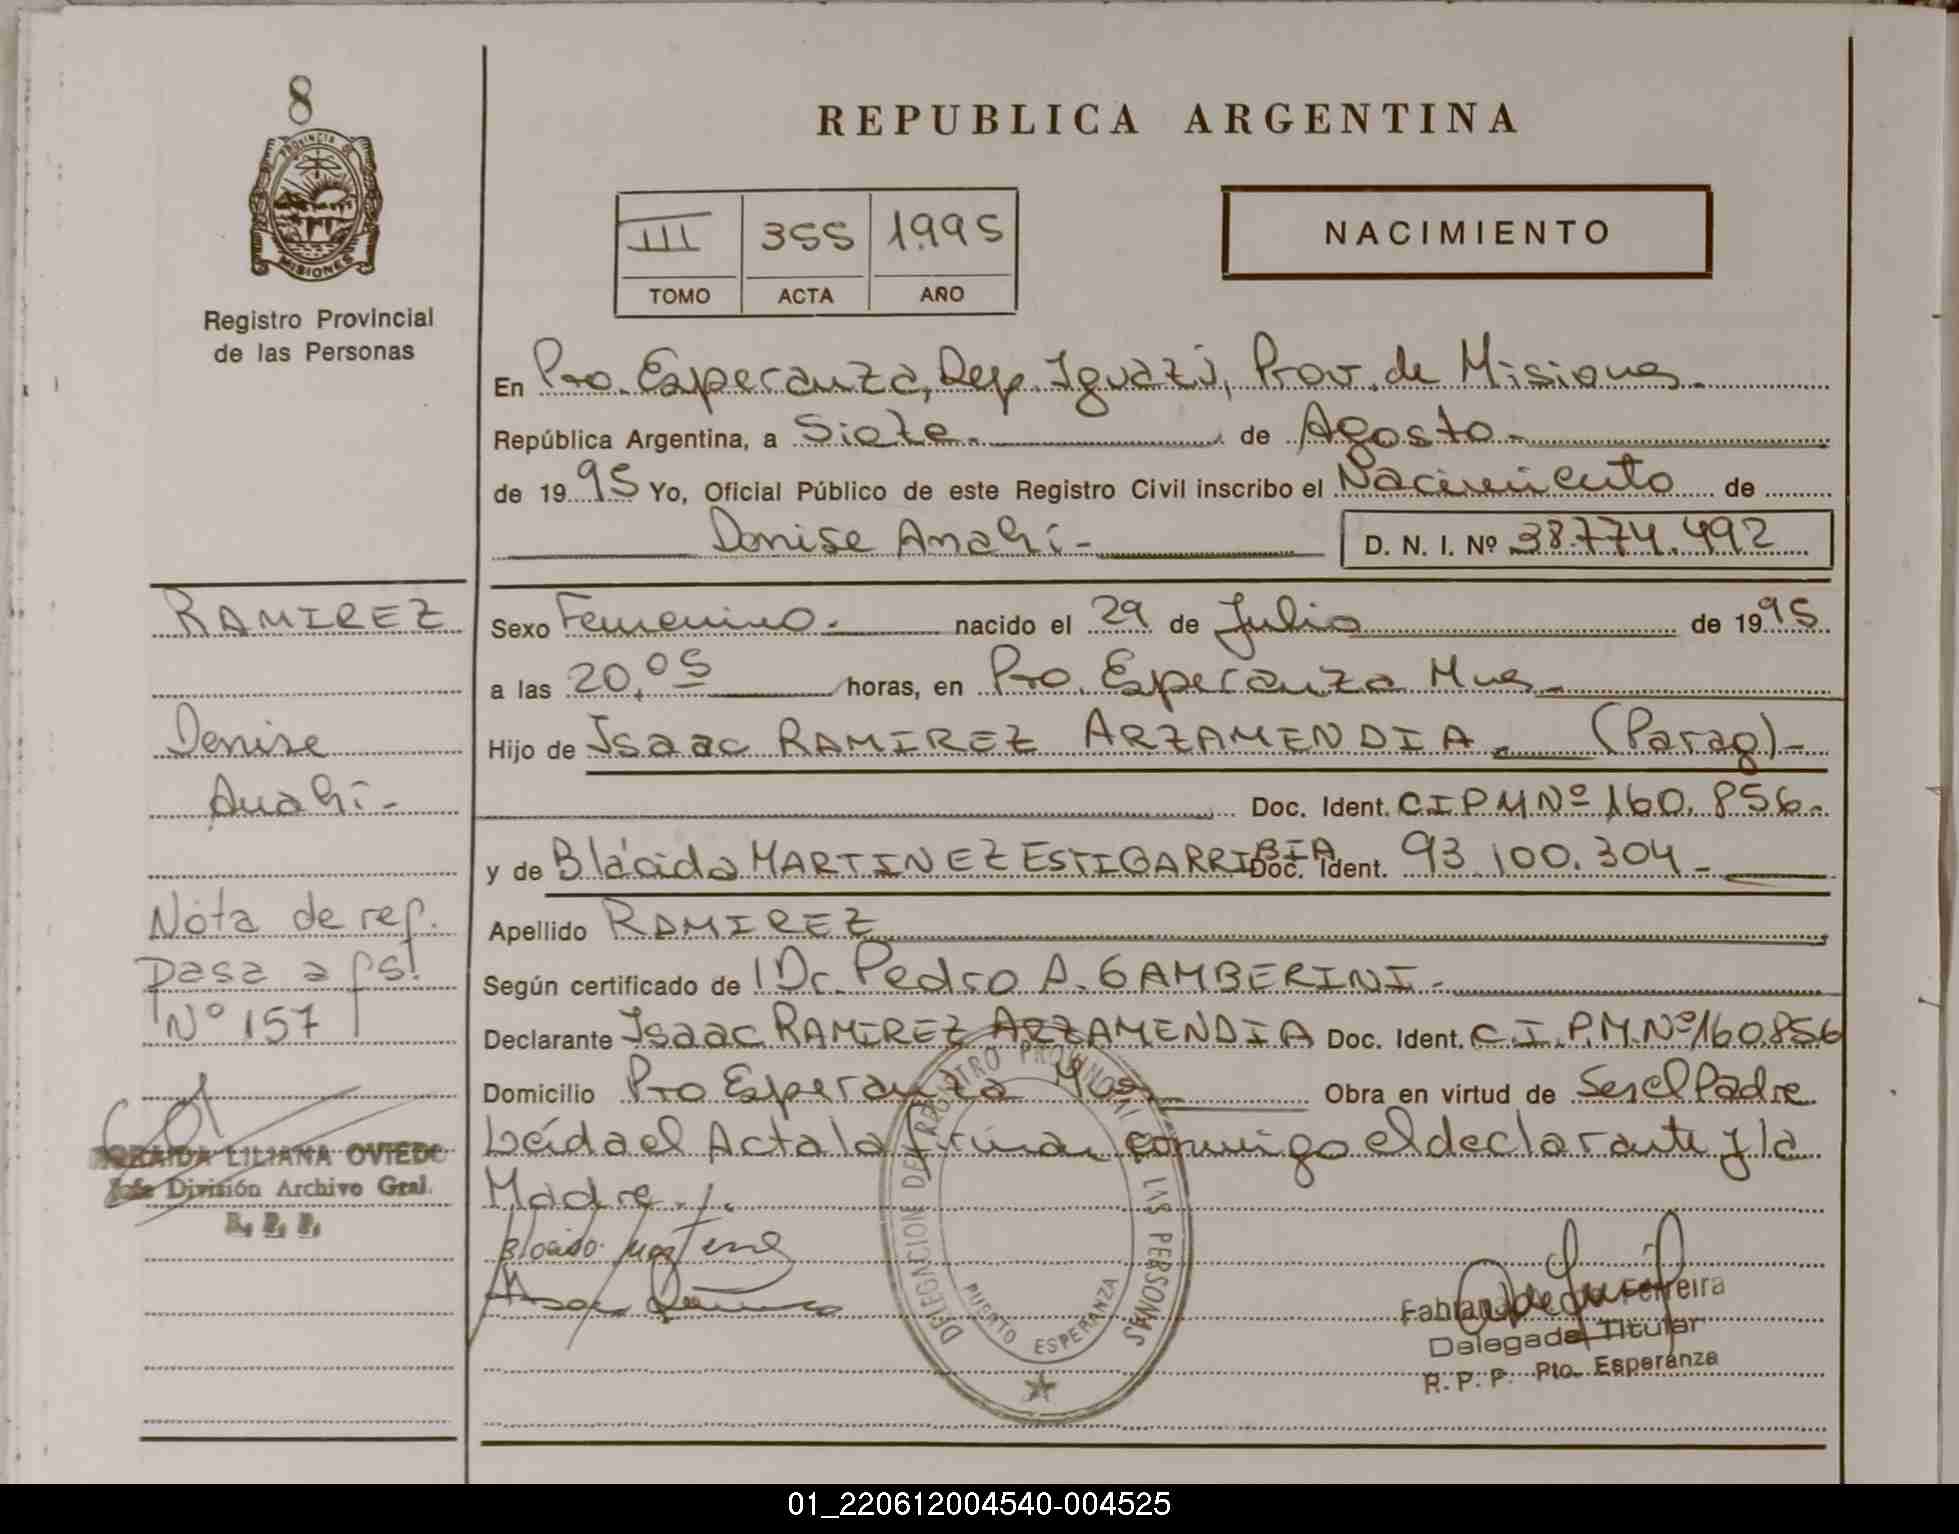 8
PROVINCIA DE
MISIONES
Registro Provincial
de las Personas
REPUBLICA ARGENTINA
III 355 1995
TOMO ACTA AÑO
NACIMIENTO
En Pto. Esperanza, Dep. Iguazú, Prov. de Misiones.
República Argentina, a Siete. de Agosto.
de 1995 Yo, Oficial Público de este Registro Civil inscribo el Nacimiento de
Denise Anahí- D. N. I. Nº 38.774.492
RAMIREZ
Denise
Anahí-
Nota de ref.
Pasa a fs!
Nº 157
LILIANA OVIEDO
Jefe División Archivo Gral.
R. P. P.
Sexo Femenino. nacido el 29 de Julio de 1995
a las 20,05 horas, en Pto. Esperanza Mnes
Hijo de Isaac RAMIREZ ARZAMENDIA. (Parag)-
Doc. Ident. C.I.P.M Nº 160.856.
y de Blácida MARTINEZ ESTIGARRIBIA Doc. Ident. 93.100.304-
Apellido RAMIREZ
Según certificado de Dr. Pedro A. GAMBERINI.
Declarante Isaac RAMIREZ ARZAMENDIA Doc. Ident. C.I.P.M.Nº160856
Domicilio Pto Esperanza Mnes Obra en virtud de Ser el Padre
Leída el Acta la firman conmigo el declarante y la
Madre./.
DELEGACION DEL REGISTRO PROVINCIAL DE LAS PERSONAS
PUERTO ESPERANZA
Ferreira
Delegada Titular
R. P. P. Pto. Esperanza
01_220612004540-004525